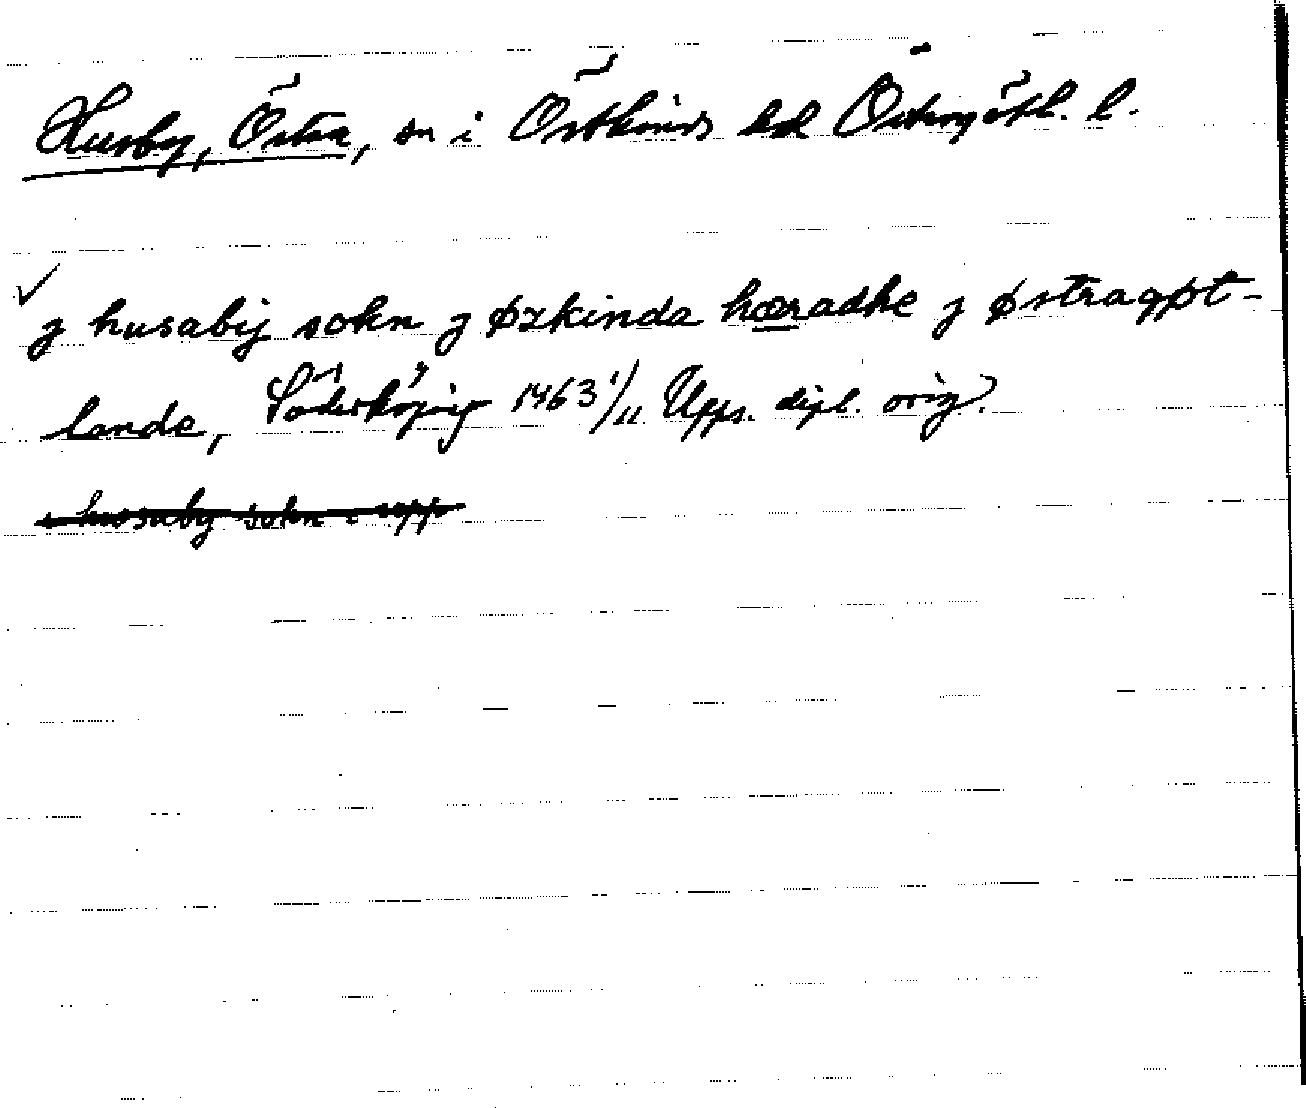 Husby, Östra, sn i Östkinds hd Östergötl. l.
✓ j husabij sokn j øzkinda hæradhe j østragøt-
landa, Söderköping 1463 1/11 Upps. dipl. orig.
i husaby sokn i upp